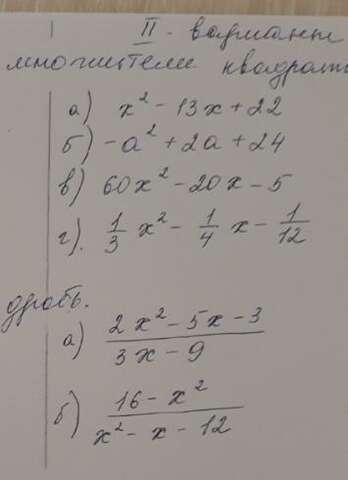 II - варианты
множители квадратн
а) x² - 13x + 22
б) -a² + 2a + 24
в) 60x² - 20x - 5
г). 1/3 x² - 1/4 x - 1/12
дробь.
а) (2x² - 5x - 3)/(3x - 9)
б) (16 - x²)/(x² - x - 12)